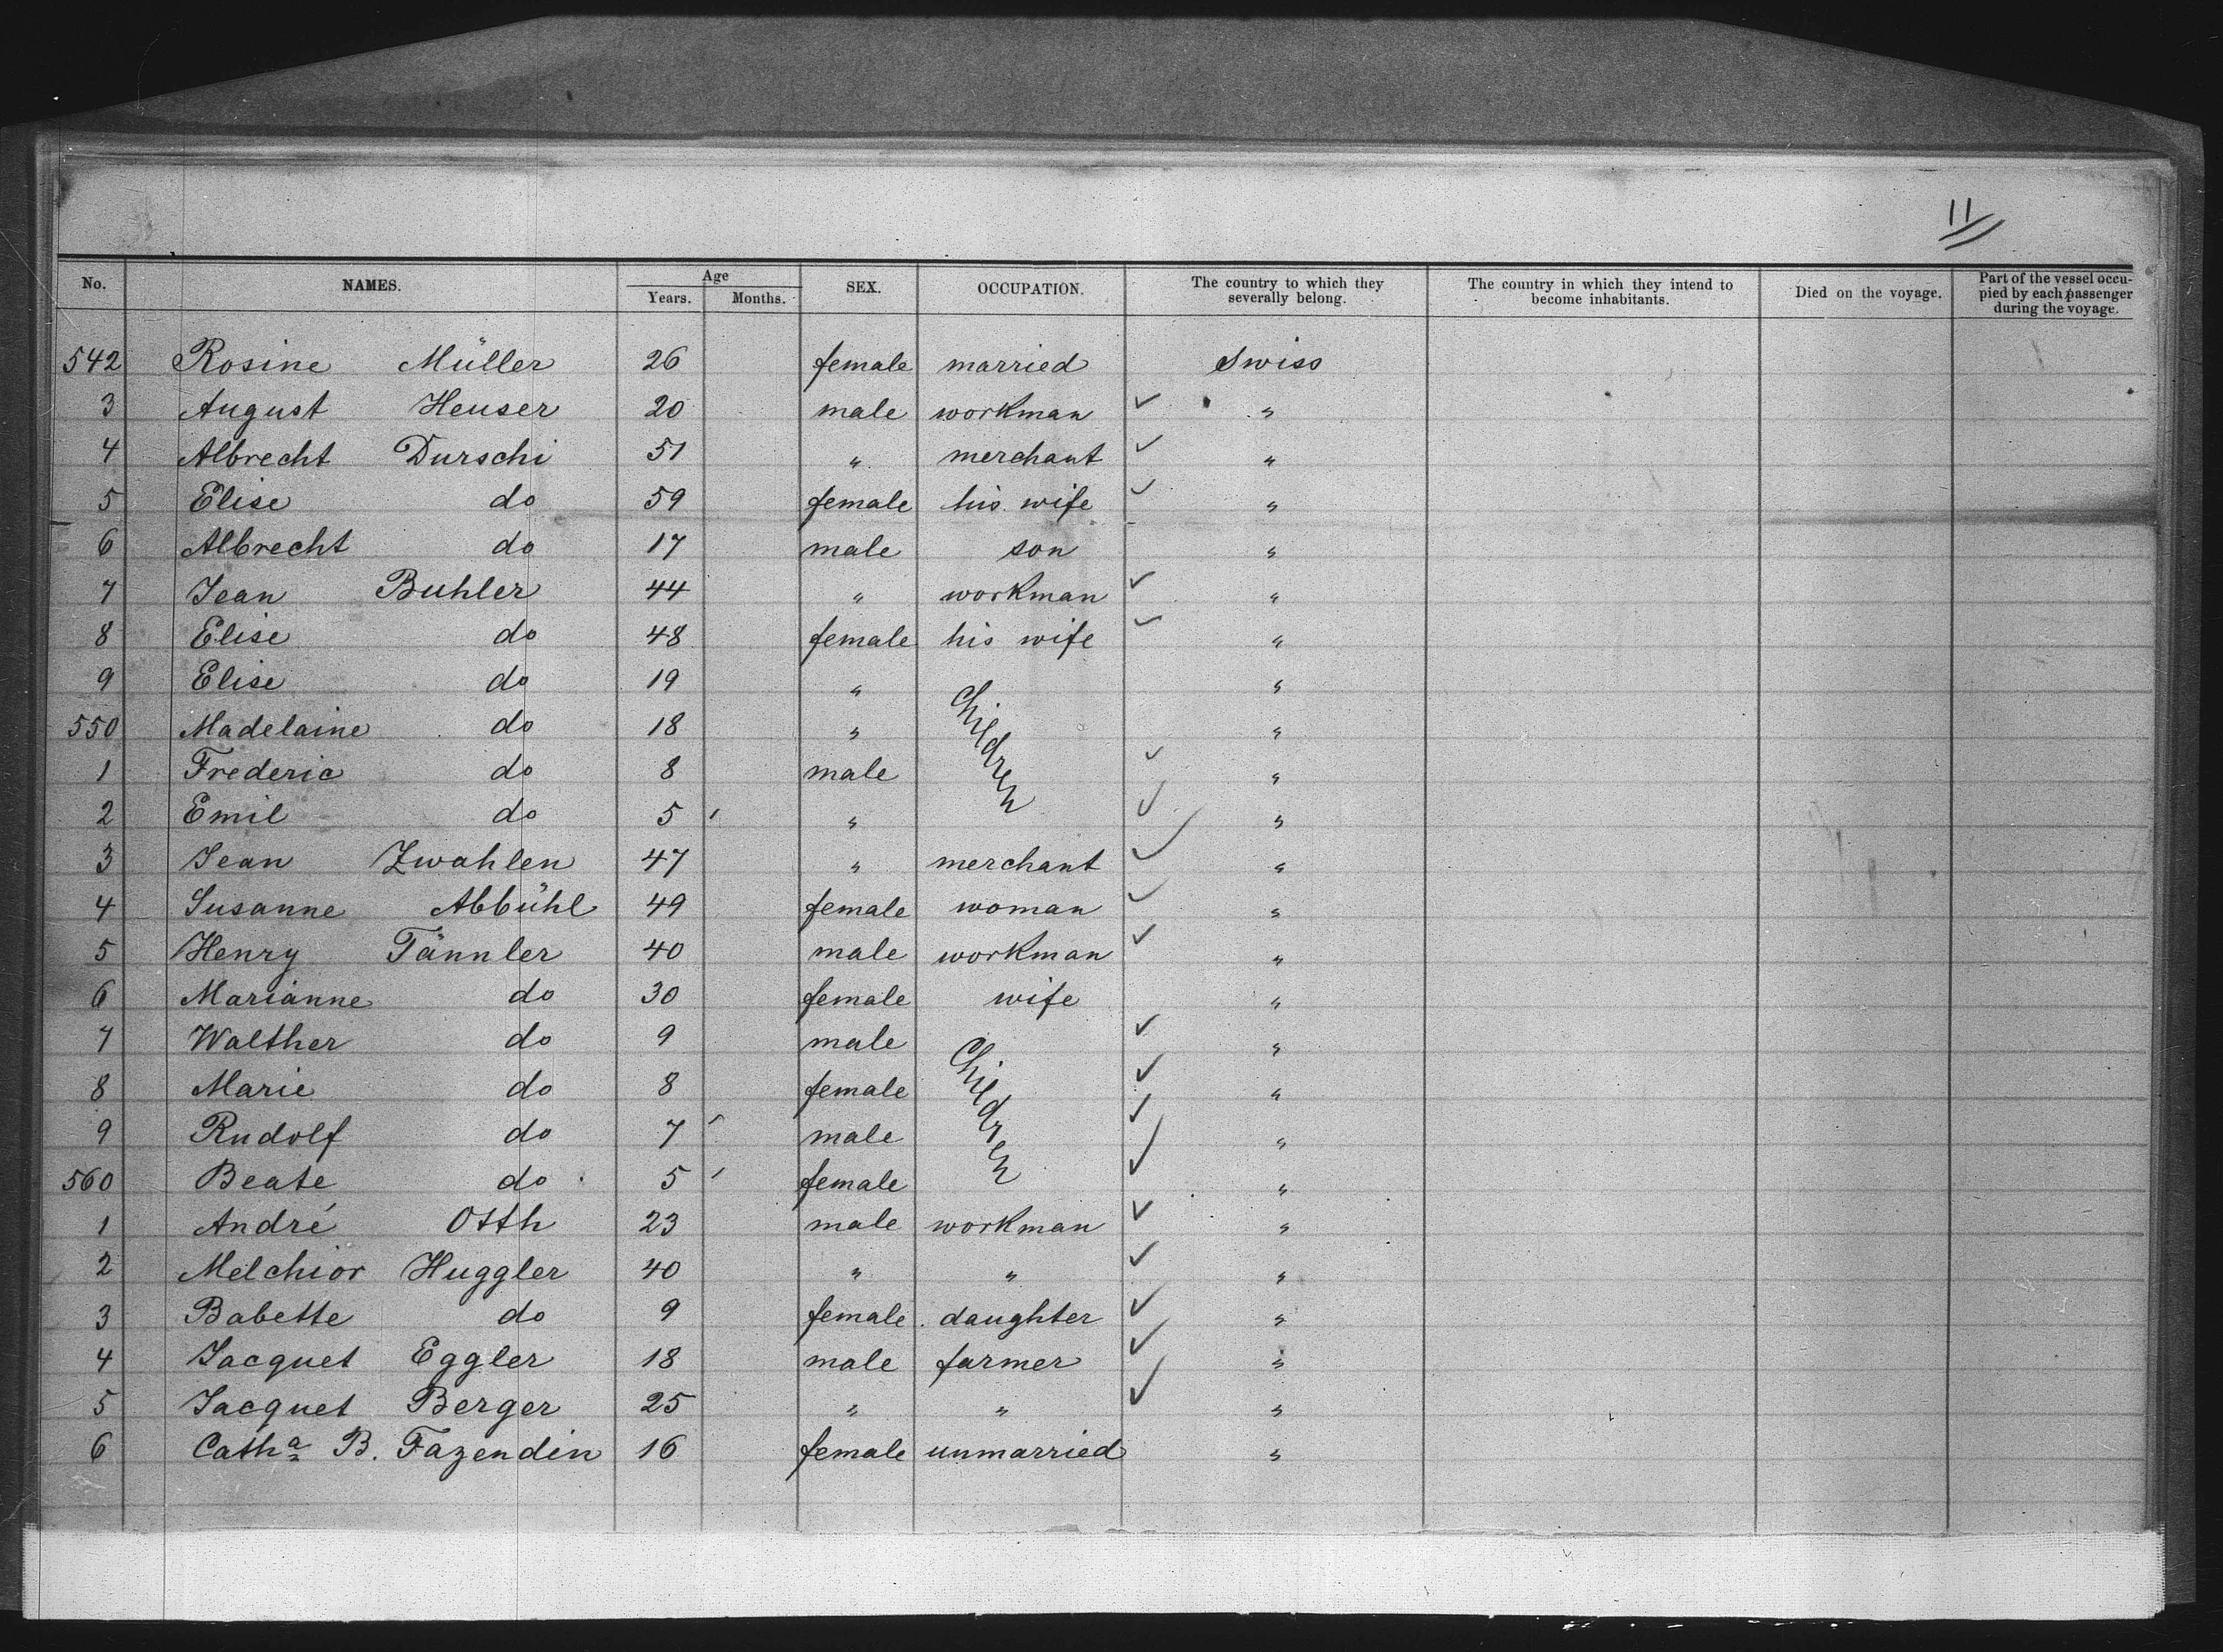 11
No. NAMES. Age Years. Months. SEX. OCCUPATION. The country to which they severally belong. The country in which they intend to become inhabitants. Died on the voyage. Part of the vessel occupied by each passenger during the voyage.
542 Rosine Müller 26 female married Swiss
3 August Heuser 20 male workman ✓ "
4 Albrecht Durschi 51 " merchant ✓ "
5 Elise do 59 female his wife ✓ "
6 Albrecht do 17 male son "
7 Jean Buhler 44 " workman ✓ "
8 Elise do 48 female his wife ✓ "
9 Elise do 19 " Children "
550 Madelaine do 18 " "
1 Frederic do 8 male ✓ "
2 Emil do 5 " ✓ "
3 Jean Zwahlen 47 " merchant ✓ "
4 Susanne Abbühl 49 female woman ✓ "
5 Henry Tännler 40 male workman ✓ "
6 Marianne do 30 female wife "
7 Walther do 9 male Children ✓ "
8 Marie do 8 female ✓ "
9 Rudolf do 7 male ✓ "
560 Beate do 5 female ✓ "
1 André Otth 23 male workman ✓ "
2 Melchior Huggler 40 " " ✓ "
3 Babette do 9 female daughter ✓ "
4 Jacquet Eggler 18 male farmer ✓ "
5 Jacquet Berger 25 " " ✓ "
6 Catha B. Fazendin 16 female unmarried "